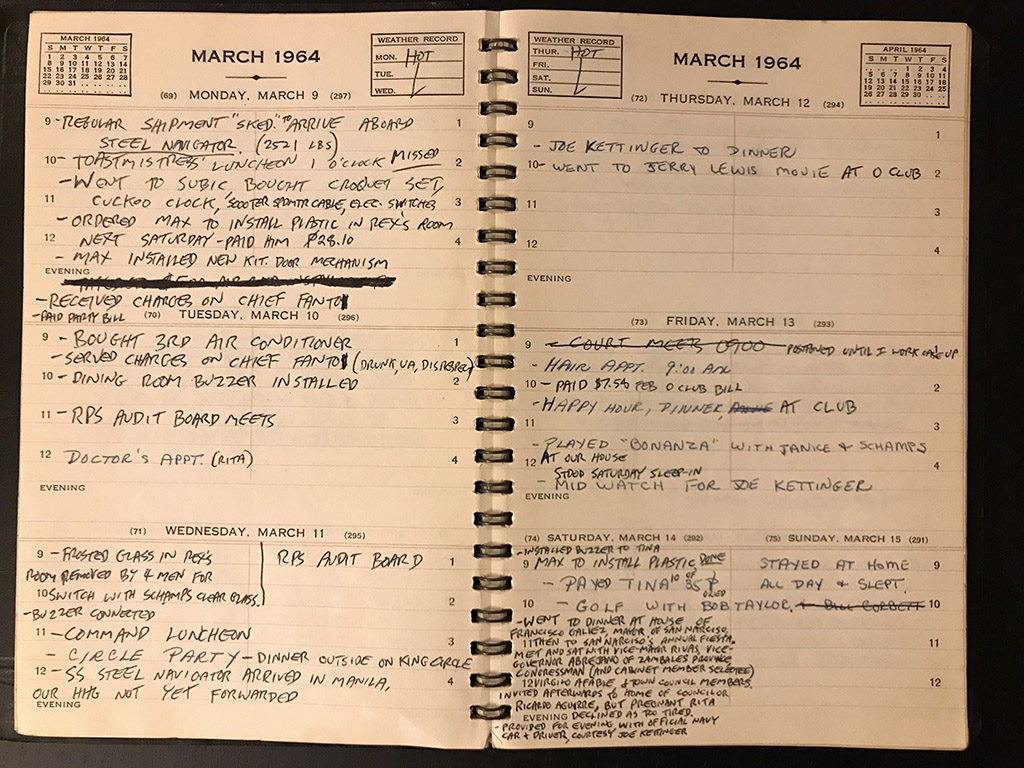 MARCH 1964
S M T W T F S
1 2 3 4 5 6 7
8 9 10 11 12 13 14
15 16 17 18 19 20 21
22 23 24 25 26 27 28
29 30 31
MARCH 1964
WEATHER RECORD
MON. HOT
TUE.
WED.
(69) MONDAY, MARCH 9 (297)
9 - REGULAR SHIPMENT "SKED." TO ARRIVE ABOARD 1
STEEL NAVIGATOR. (2521 LBS)
10 - TOASTMISTRESS' LUNCHEON 1 O'CLOCK MISSED 2
- WENT TO SUBIC, BOUGHT CROQUET SET,
11 CUCKOO CLOCK, SCOOTER SPDMTR CABLE, ELEC. SWITCHES 3
- ORDERED MAX TO INSTALL PLASTIC IN REX'S ROOM
12 NEXT SATURDAY - PAID HIM $28.10 4
- MAX INSTALLED NEW KIT. DOOR MECHANISM
EVENING
- RECEIVED CHARGES ON CHIEF FANTO
- PAID PARTY BILL
(70) TUESDAY, MARCH 10 (296)
9 - BOUGHT 3RD AIR CONDITIONER 1
- SERVED CHARGES ON CHIEF FANTO (DRUNK, UA, DISRESPECT)
10 - DINING ROOM BUZZER INSTALLED 2
11 - RPS AUDIT BOARD MEETS 3
12 DOCTOR'S APPT. (RITA) 4
EVENING
(71) WEDNESDAY, MARCH 11 (295)
9 - FROSTED GLASS IN REX'S RPS AUDIT BOARD 1
ROOM REMOVED BY 4 MEN FOR
10 SWITCH WITH SCHAMPS CLEAR GLASS. 2
- BUZZER CONNECTED
11 - COMMAND LUNCHEON 3
- CIRCLE PARTY - DINNER OUTSIDE ON KING CIRCLE
12 - SS STEEL NAVIGATOR ARRIVED IN MANILA, 4
OUR HHG NOT YET FORWARDED
EVENING
WEATHER RECORD
THUR. HOT
FRI.
SAT.
SUN.
MARCH 1964
APRIL 1964
S M T W T F S
1 2 3 4
5 6 7 8 9 10 11
12 13 14 15 16 17 18
19 20 21 22 23 24 25
26 27 28 29 30
(72) THURSDAY, MARCH 12 (294)
9 1
- JOE KETTINGER TO DINNER
10 - WENT TO JERRY LEWIS MOVIE AT O CLUB 2
11 3
12 4
EVENING
(73) FRIDAY, MARCH 13 (293)
9 - COURT MEETS 0900 POSTPONED UNTIL I WORK CASE UP
- HAIR APPT. 9:00 AM
10 - PAID $7.54 FEB O CLUB BILL 2
- HAPPY HOUR, DINNER, AT CLUB
11 3
- PLAYED "BONANZA" WITH JANICE & SCHAMPS
12 AT OUR HOUSE 4
STOOD SATURDAY SLEEP-IN
- MID WATCH FOR JOE KETTINGER
EVENING
(74) SATURDAY, MARCH 14 (292)
- INSTALLED BUZZER TO TINA
9 MAX TO INSTALL PLASTIC DONE
- PAYED TINA 10 OF 35 $ OWED
10 - GOLF WITH BOB TAYLOR, & BILL CORBETT
- WENT TO DINNER AT HOUSE OF
FRANCISCO GALVEZ, MAYOR OF SAN NARCISO,
11 THEN TO SAN NARCISO'S ANNUAL FIESTA.
MET AND SAT WITH VICE-MAYOR RIVAS, VICE-
GOVERNOR ABREJANO OF ZAMBALES PROVINCE
CONGRESSMAN (AND CABINET MEMBER SELECTEE)
12 VIRGILIO AFABLE & TOWN COUNCIL MEMBERS.
INVITED AFTERWARDS TO HOME OF COUNCILOR
RICARDO AGUIRRE, BUT PREGNANT RITA
EVENING DECLINED AS TOO TIRED.
- PROVIDED FOR EVENING WITH OFFICIAL NAVY
CAR & DRIVER, COURTESY JOE KETTINGER
(75) SUNDAY, MARCH 15 (291)
STAYED AT HOME 9
ALL DAY & SLEPT.
10
11
12